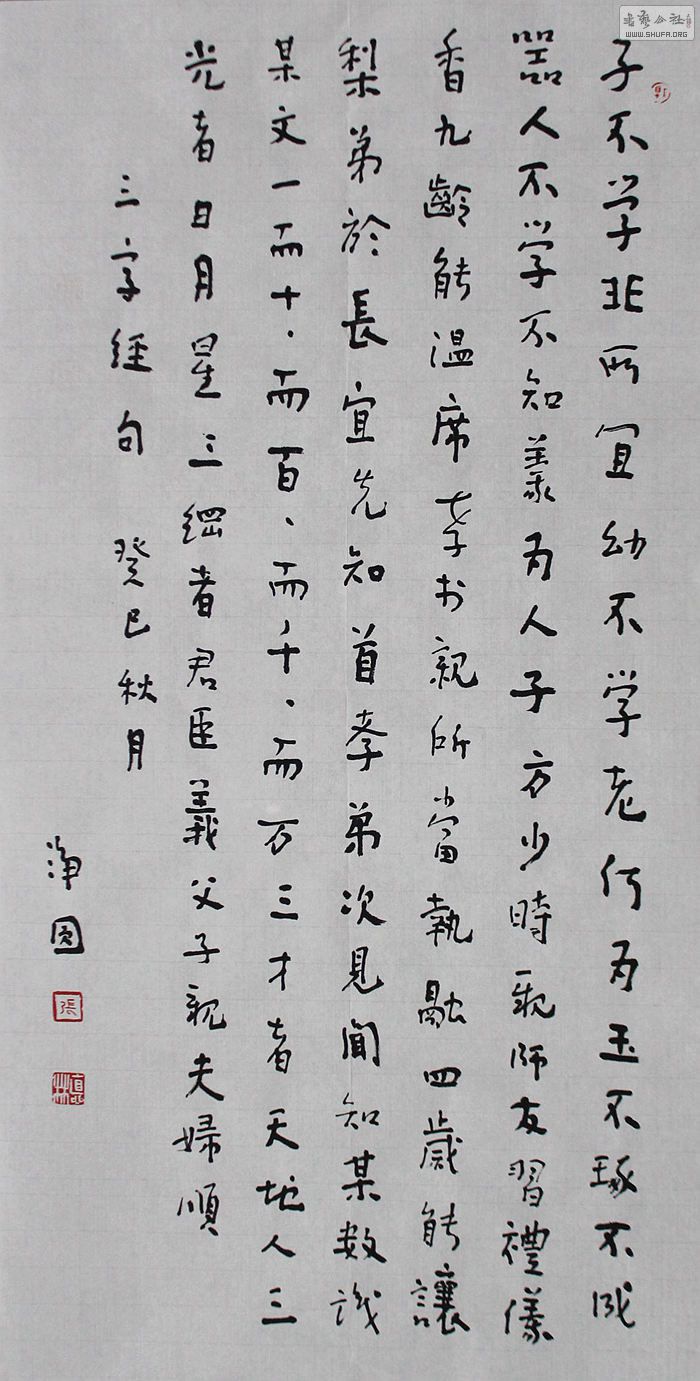 子不学非所宜幼不学老何为玉不琢不成
器人不学不知義为人子方少時親師友習禮儀
香九齡能温席孝於親所當執融四歲能讓
梨弟於長宜先知首孝弟次見聞知某数識
某文一而十、而百、而千、而万三才者天地人三
光者日月星三綱者君臣義父子親夫婦順
三字経句 癸巳秋月
淨圆
張
書艺公社
WWW.SHUFA.ORG